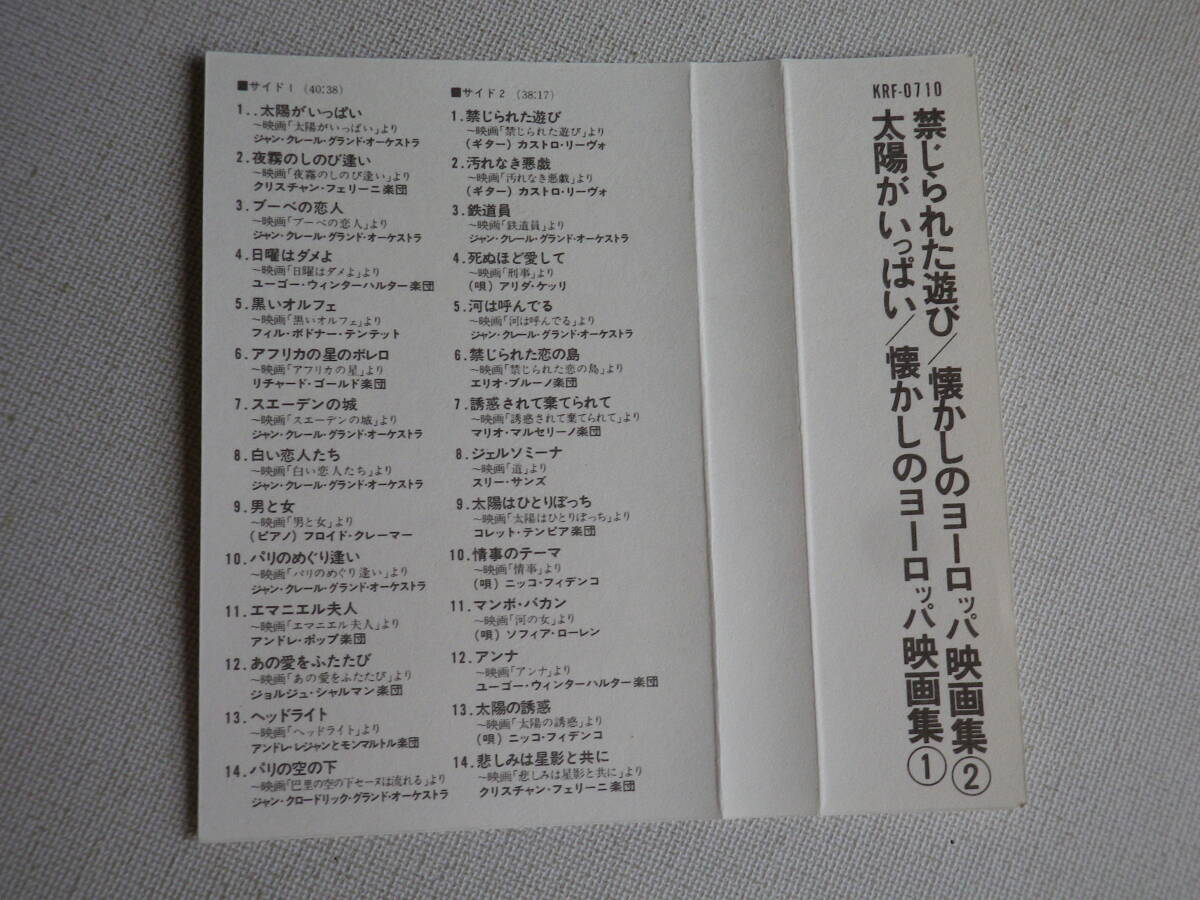 ■サイド1 (40:38)
1..太陽がいっぱい
～映画「太陽がいっぱい」より
ジャン・クレール・グランド・オーケストラ
2.夜霧のしのび逢い
～映画「夜霧のしのび逢い」より
クリスチャン・フェリーニ楽団
3.ブーベの恋人
～映画「ブーベの恋人」より
ジャン・クレール・グランド・オーケストラ
4.日曜はダメよ
～映画「日曜はダメよ」より
ユーゴー・ウィンターハルター楽団
5.黒いオルフェ
～映画「黒いオルフェ」より
フィル・ボドナー・テンテット
6.アフリカの星のボレロ
～映画「アフリカの星」より
リチャード・ゴールド楽団
7.スエーデンの城
～映画「スエーデンの城」より
ジャン・クレール・グランド・オーケストラ
8.白い恋人たち
～映画「白い恋人たち」より
ジャン・クレール・グランド・オーケストラ
9.男と女
～映画「男と女」より
(ピアノ) フロイド・クレーマー
10.パリのめぐり逢い
～映画「パリのめぐり逢い」より
ジャン・クレール・グランド・オーケストラ
11.エマニエル夫人
～映画「エマニエル夫人」より
アンドレ・ポップ楽団
12.あの愛をふたたび
～映画「あの愛をふたたび」より
ジョルジュ・シャルマン楽団
13.ヘッドライト
～映画「ヘッドライト」より
アンドレ・レジャンとモンマルトル楽団
14.パリの空の下
～映画「巴里の空の下セーヌは流れる」より
ジャン・クロードリック・グランド・オーケストラ
■サイド2 (38:17)
1.禁じられた遊び
～映画「禁じられた遊び」より
(ギター) カストロ・リーヴォ
2.汚れなき悪戯
～映画「汚れなき悪戯」より
(ギター) カストロ・リーヴォ
3.鉄道員
～映画「鉄道員」より
ジャン・クレール・グランド・オーケストラ
4.死ぬほど愛して
～映画「刑事」より
(唄) アリダ・ケッリ
5.河は呼んでる
～映画「河は呼んでる」より
ジャン・クレール・グランド・オーケストラ
6.禁じられた恋の島
～映画「禁じられた恋の島」より
エリオ・ブルーノ楽団
7.誘惑されて棄てられて
～映画「誘惑されて棄てられて」より
マリオ・マルセリーノ楽団
8.ジェルソミーナ
～映画「道」より
スリー・サンズ
9.太陽はひとりぼっち
～映画「太陽はひとりぼっち」より
コレット・テンピア楽団
10.情事のテーマ
～映画「情事」より
(唄) ニッコ・フィデンコ
11.マンボ・バカン
～映画「河の女」より
(唄) ソフィア・ローレン
12.アンナ
～映画「アンナ」より
ユーゴー・ウィンターハルター楽団
13.太陽の誘惑
～映画「太陽の誘惑」より
(唄) ニッコ・フィデンコ
14.悲しみは星影と共に
～映画「悲しみは星影と共に」より
クリスチャン・フェリーニ楽団
KRF-0710
禁じられた遊び/懐かしのヨーロッパ映画集②
太陽がいっぱい/懐かしのヨーロッパ映画集①